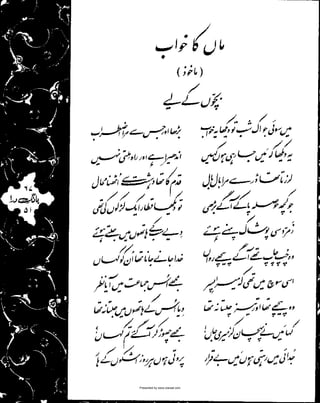 ماں کا خواب
(ماخوذ)
بچوں کے لیے
میں سوئی جو اک شب تو دیکھا یہ خواب بڑھا اور جس سے مرا اضطراب
یہ دیکھا کہ میں جا رہی ہوں کہیں اندھیرا ہے اور راہ ملتی نہیں
لرزتا تھا ڈر سے مرا بال بال قدم کا تھا دہشت سے اٹھنا محال
جو کچھ حوصلہ پا کے آگے بڑھی تو دیکھا قطار ایک لڑکوں کی تھی
زمرد سی پوشاک پہنے ہوئے دیے سب کے ہاتھوں میں جلتے ہوئے
وہ چپ چاپ تھے آگے پیچھے رواں خدا جانے جانا تھا ان کو کہاں
اسی سوچ میں تھی کہ میرا پسر مجھے اس جماعت میں آیا نظر
وہ پیچھے تھا اور تیز چلتا نہ تھا دیا اس کے ہاتھوں میں جلتا نہ تھا
کہا میں نے پہچان کر، میری جاں! مجھے چھوڑ کر آ گئے تم کہاں!
جدائی میں رہتی ہوں میں بے قرار پروتی ہوں ہر روز اشکوں کے ہار
بانگ درا
۵۱
Presented by